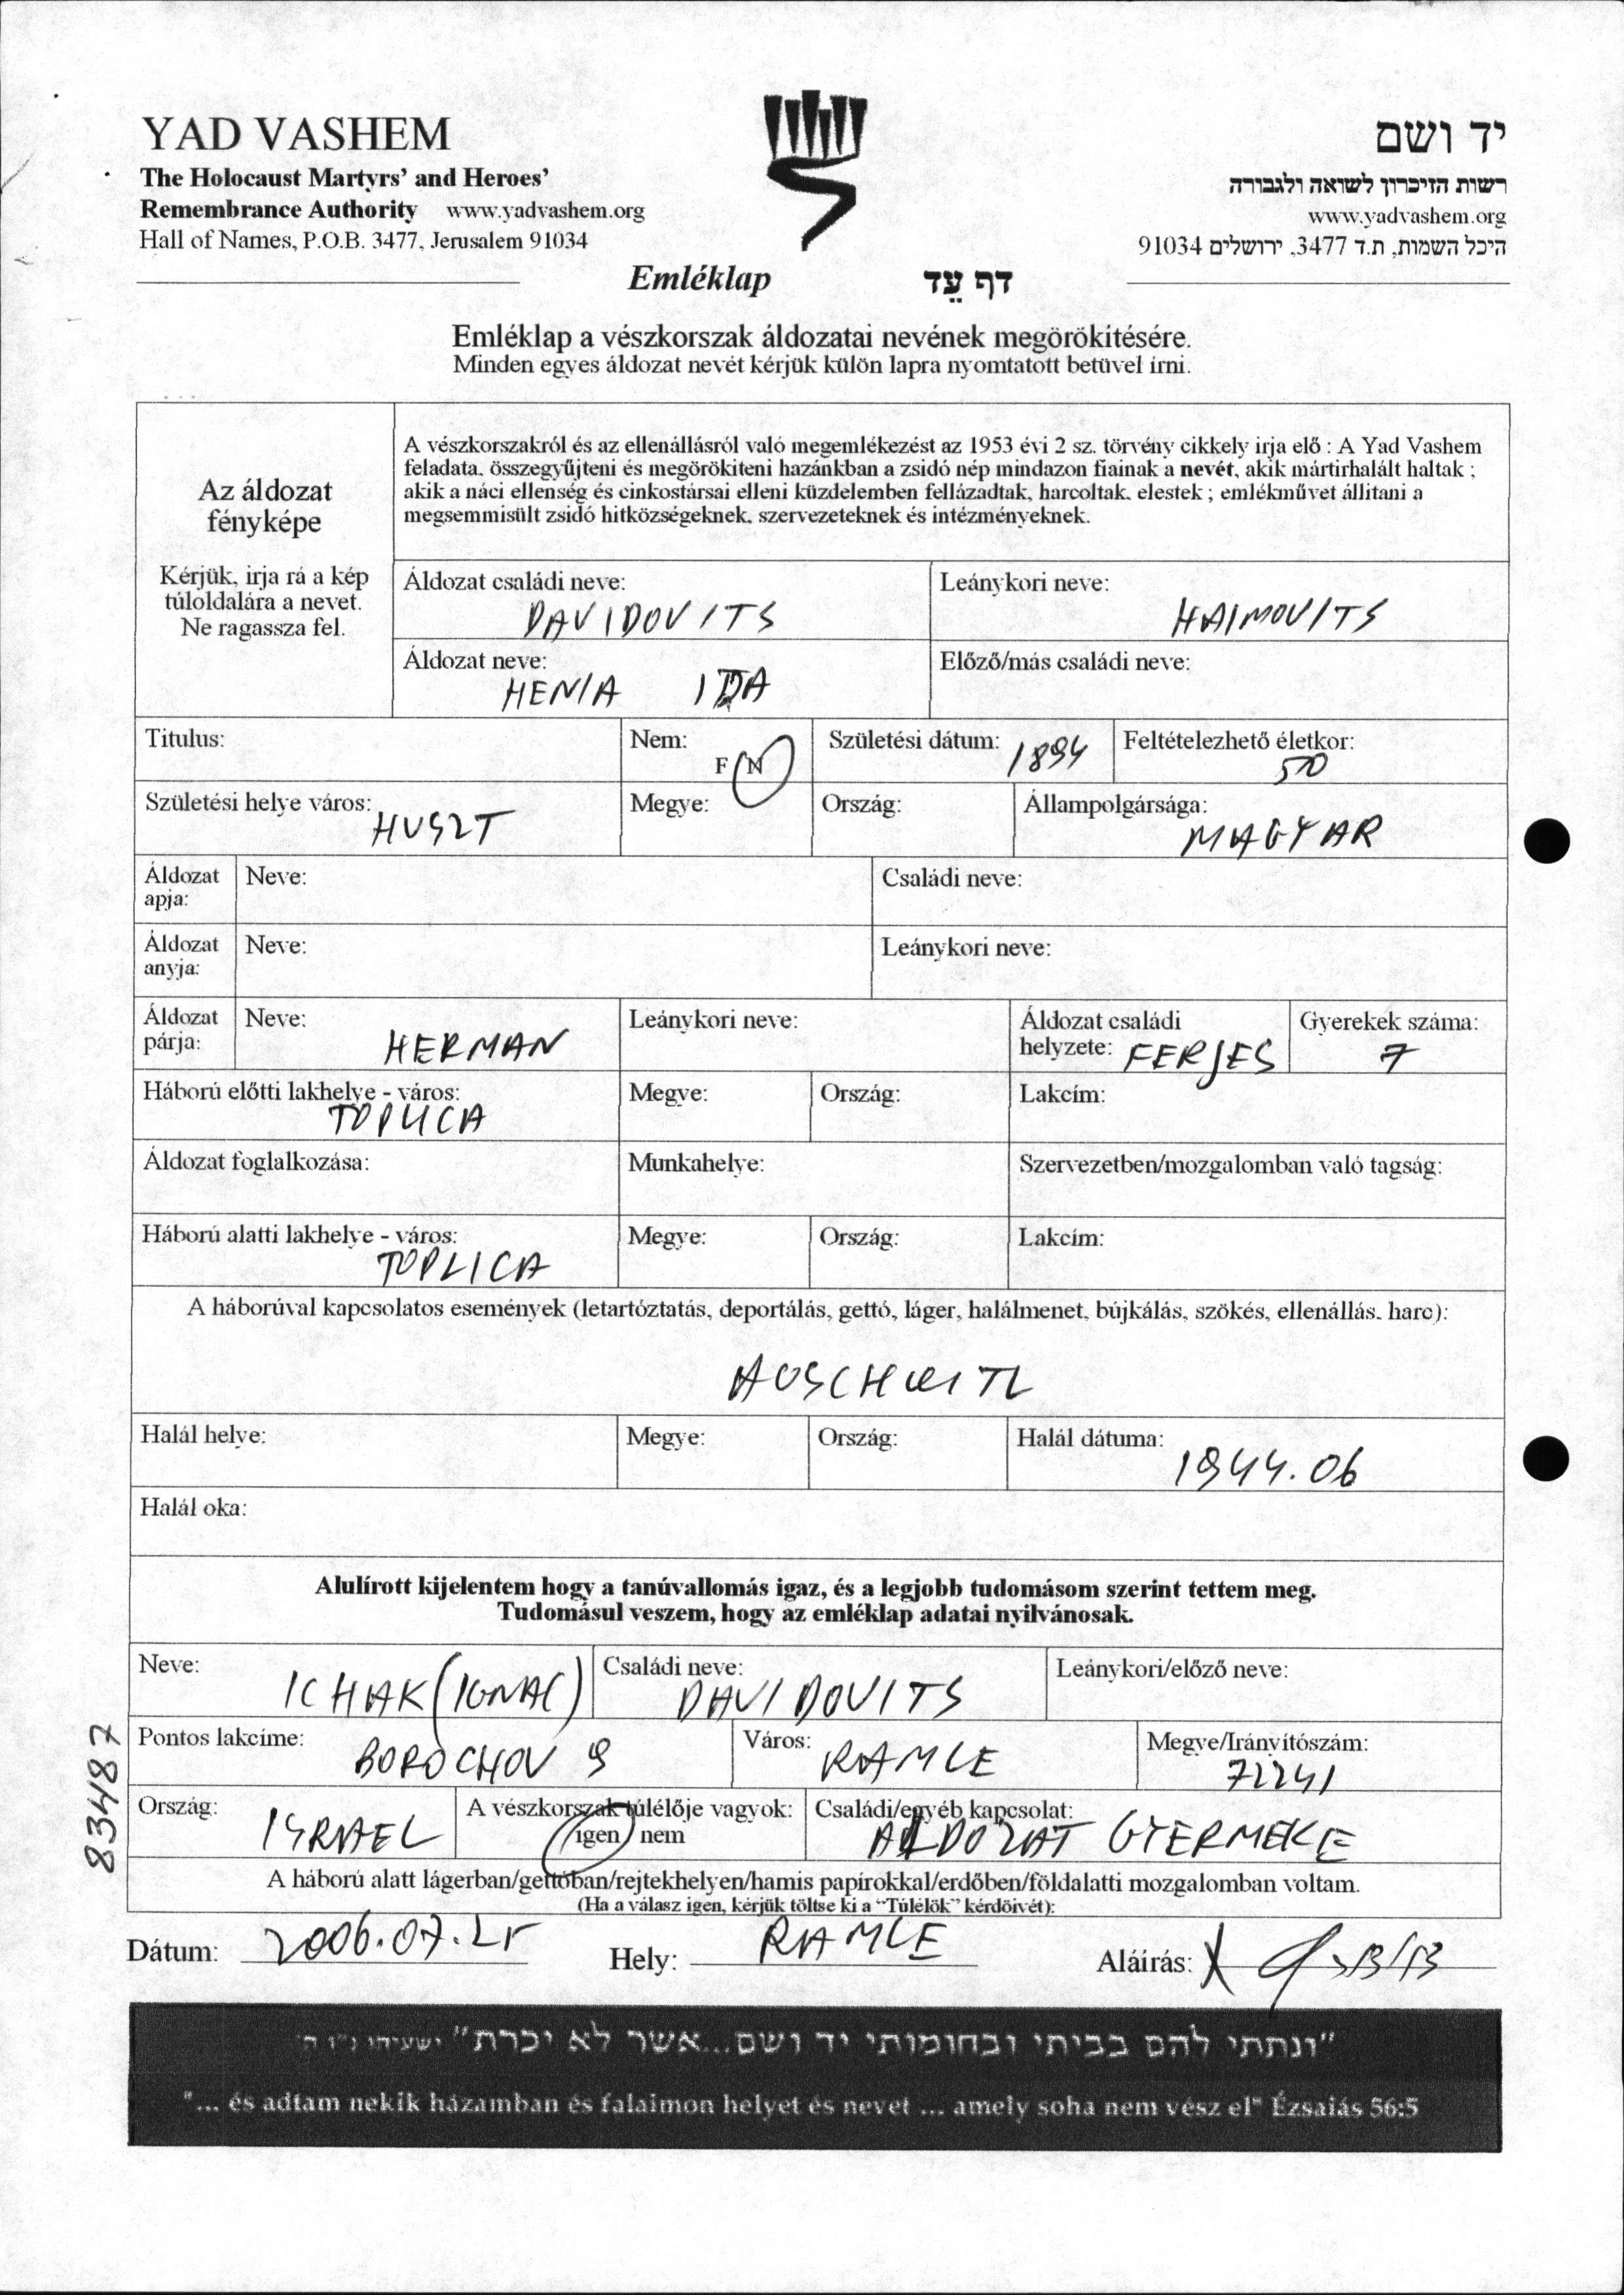 YAD VASHEM
The Holocaust Martyrs' and Heroes'
Remembrance Authority www.yadvashem.org
Hall of Names, P.O.B. 3477, Jerusalem 91034
יד ושם
רשות הזיכרון לשואה ולגבורה
www.yadvashem.org
היכל השמות, ת.ד 3477, ירושלים 91034
Emléklap דף עֵד
Emléklap a vészkorszak áldozatai nevének megörökitésére.
Minden egyes áldozat nevét kérjük külön lapra nyomtatott betüvel irni.
Az áldozat
fényképe
Kérjük, irja rá a kép
túloldalára a nevet.
Ne ragassza fel.
A vészkorszakról és az ellenállásról való megemlékezést az 1953 évi 2 sz. törvény cikkely irja elő : A Yad Vashem
feladata, összegyűjteni és megörökiteni hazánkban a zsidó nép mindazon fiainak a nevét, akik mártirhalált haltak ;
akik a náci ellenség és cinkostársai elleni küzdelemben fellázadtak, harcoltak, elestek ; emlékművet állitani a
megsemmisült zsidó hitközségeknek, szervezeteknek és intézményeknek.
Áldozat családi neve: DAVIDOVITS Leánykori neve: HAIMOVITS
Áldozat neve: HENIA IDA Előző/más családi neve:
Titulus: Nem: F N Születési dátum: 1894 Feltételezhető életkor: 50
Születési helye város: HUSZT Megye: Ország: Állampolgársága: MAGYAR
Áldozat apja: Neve: Családi neve:
Áldozat anyja: Neve: Leánykori neve:
Áldozat párja: Neve: HERMAN Leánykori neve: Áldozat családi helyzete: FERJES Gyerekek száma: 7
Háború előtti lakhelye - város: TOPLICA Megye: Ország: Lakcím:
Áldozat foglalkozása: Munkahelye: Szervezetben/mozgalomban való tagság:
Háború alatti lakhelye - város: TOPLICA Megye: Ország: Lakcím:
A háborúval kapcsolatos események (letartóztatás, deportálás, gettó, láger, halálmenet, bújkálás, szökés, ellenállás, harc):
AUSCHWITZ
Halál helye: Megye: Ország: Halál dátuma: 1944.06
Halál oka:
Alulírott kijelentem hogy a tanúvallomás igaz, és a legjobb tudomásom szerint tettem meg.
Tudomásul veszem, hogy az emléklap adatai nyilvánosak.
Neve: ICHAK (IGNAC) Családi neve: DAVIDOVITS Leánykori/előző neve:
Pontos lakcíme: BOROCHOV 9 Város: RAMLE Megye/Irányítószám: 72241
Ország: ISRAEL A vészkorszak túlélője vagyok: igen nem Családi/egyéb kapcsolat: ALDOZAT GYERMEKE
A háború alatt lágerban/gettóban/rejtekhelyen/hamis papírokkal/erdőben/földalatti mozgalomban voltam.
(Ha a válasz igen, kérjük töltse ki a "Túlélök" kérdöivét):
Dátum: 2006.07.25 Hely: RAMLE Aláírás: X
83487
"ונתתי להם בביתי ובחומותי יד ושם...אשר לא יכרת" ישעיהו נ"ו ה'
"... és adtam nekik házamban és falaimon helyet és nevet ... amely soha nem vész el" Ézsaiás 56:5